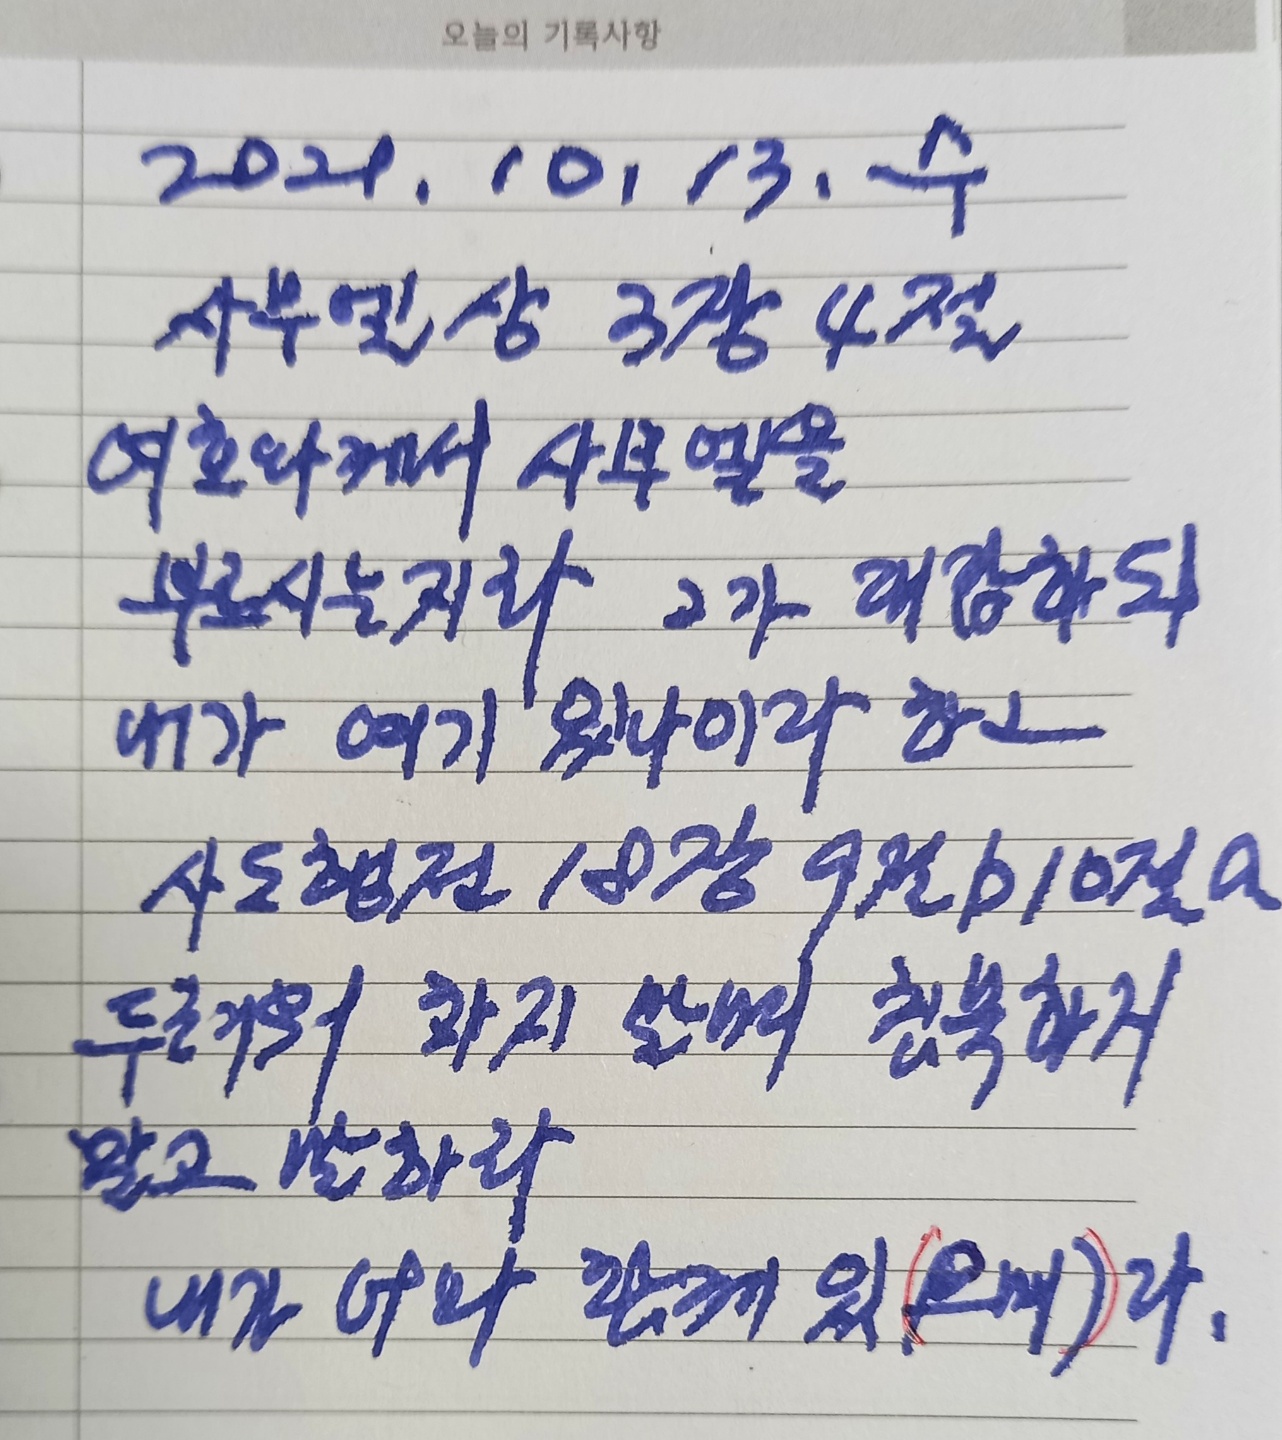 오늘의 기록사항
2021. 10. 13. 수
사무엘 상 3장 4절
여호와께서 사무엘을
부르시는지라 그가 대답하되
내가 여기 있나이다 하고
사도행전 18장 9절b 10절a
두려워 하지 말며 침묵하지
말고 말하라
내가 너와 함께 있(으매)라.